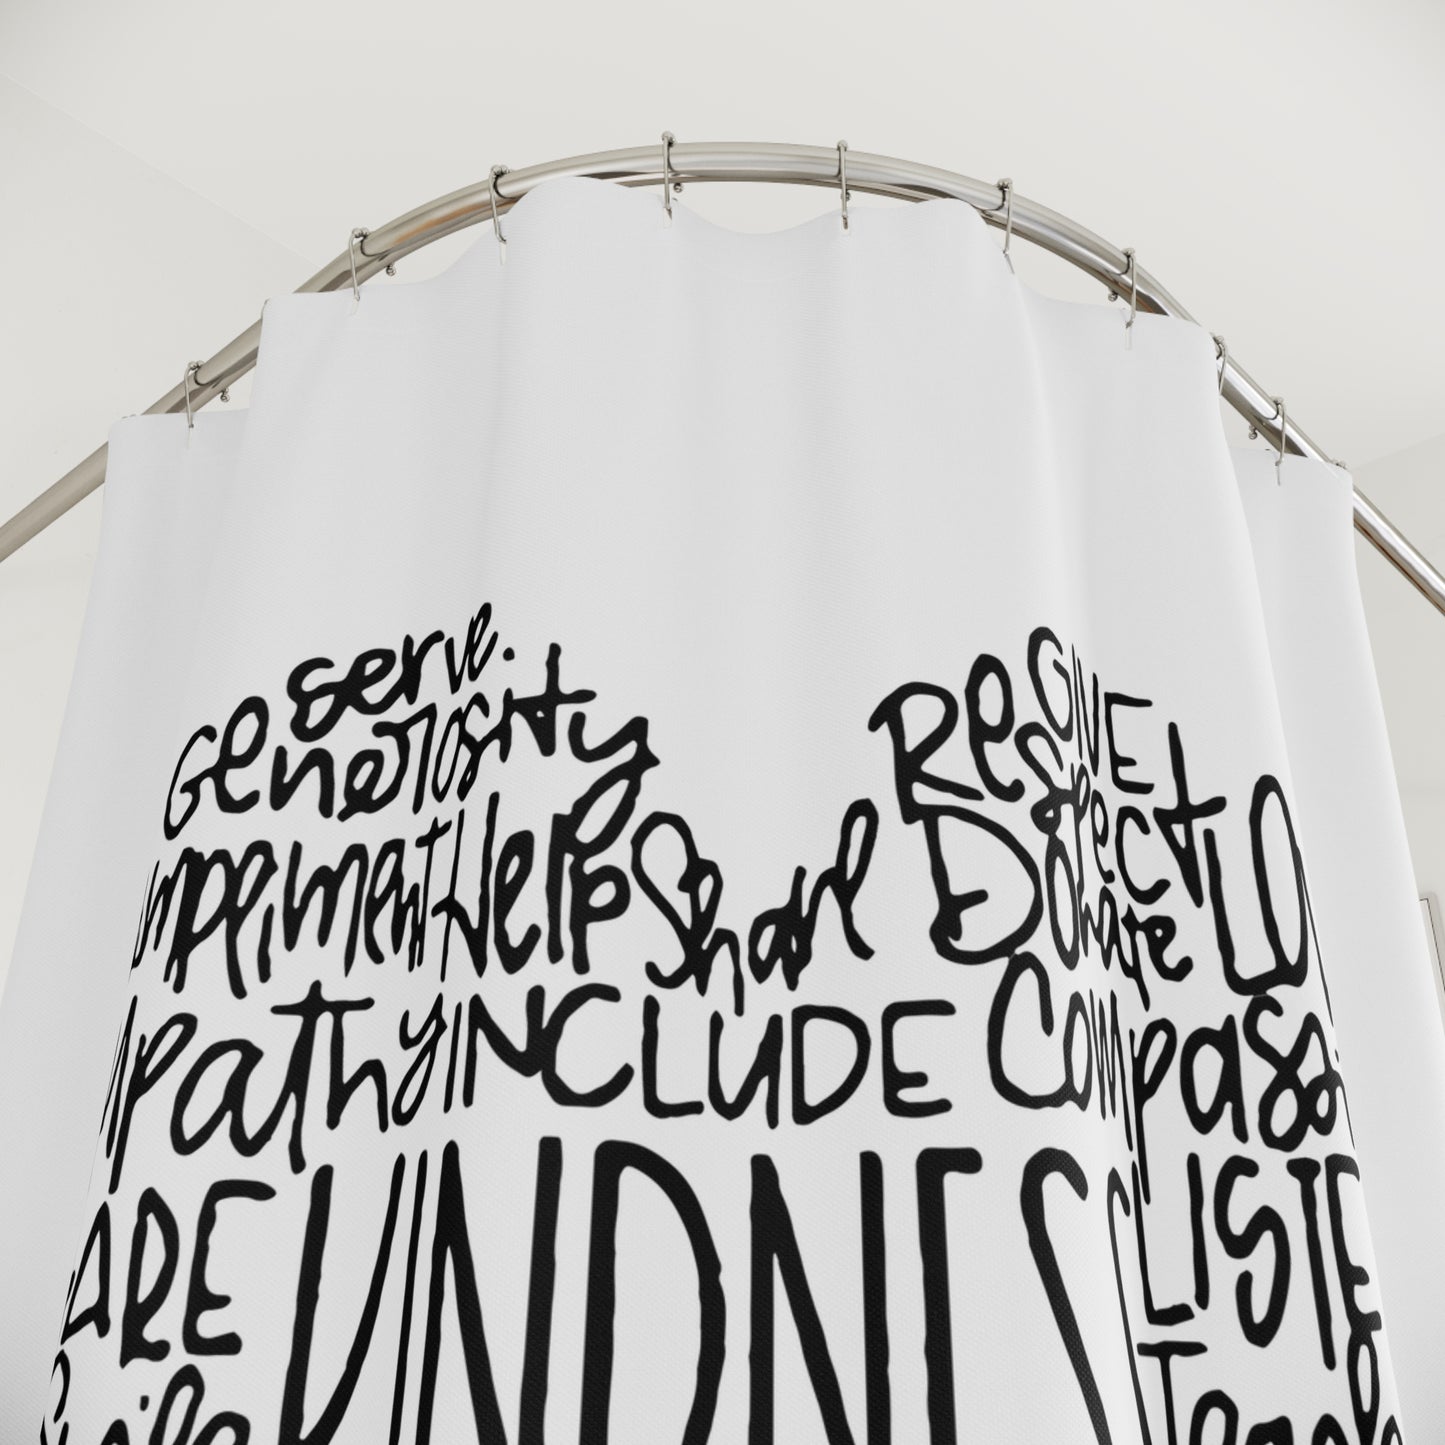 serve. GIVE
Generosity Respect
ompliment Help Share Donate LO
mpathy INCLUDE Compassi
ARE KINDNES LISTE
Smile